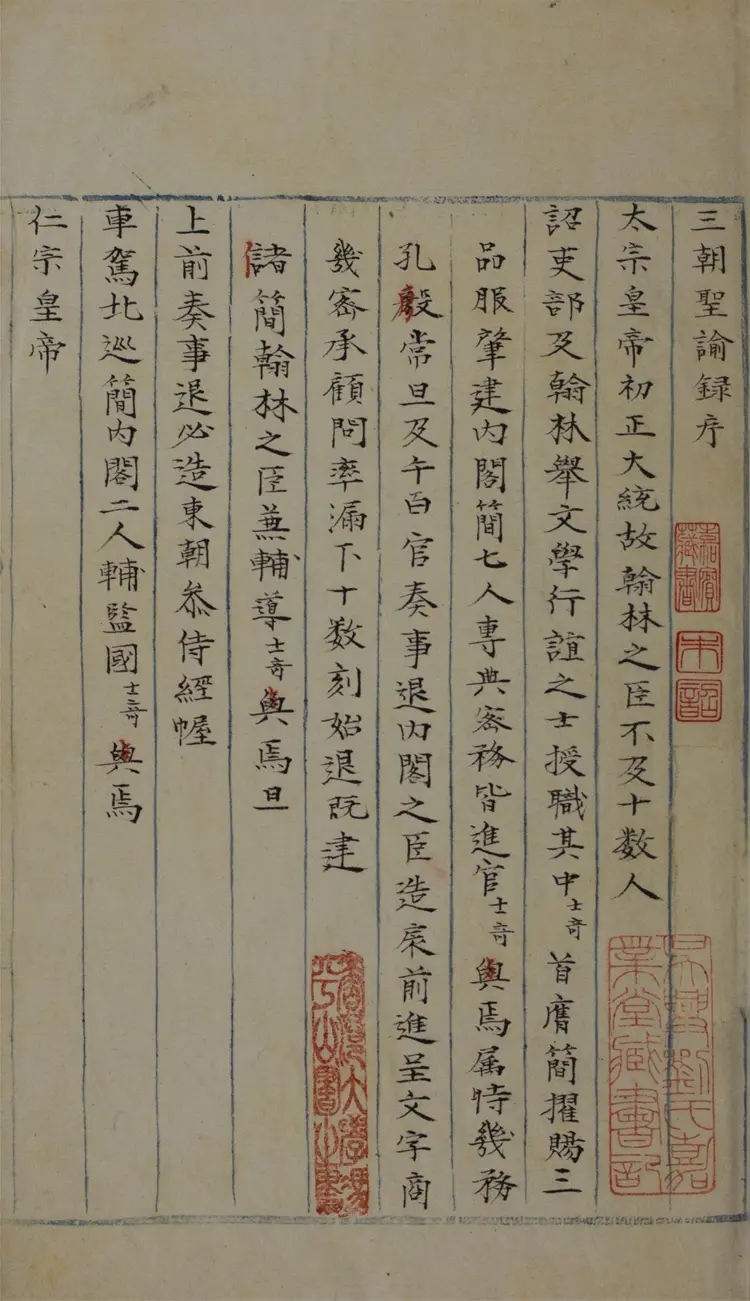 三朝聖諭録序
太宗皇帝初正大統故翰林之臣不及十数人
詔吏部及翰林舉文學行誼之士授職其中士竒首膺簡擢賜三
品服肇建内閣簡七人專典宻務皆進官士竒與焉属时幾務
孔殷常旦及午百官奏事退内閣之臣造扆前進呈文字商
幾宻承顧問率漏下十数刻始退既建
諸簡翰林之臣兼輔導士竒與焉旦
上前奏事退必造東朝叅侍經幄
車駕北巡簡内閣二人輔監國士竒與焉
仁宗皇帝
嘉賓藏書
吴興劉氏嘉業堂藏書記